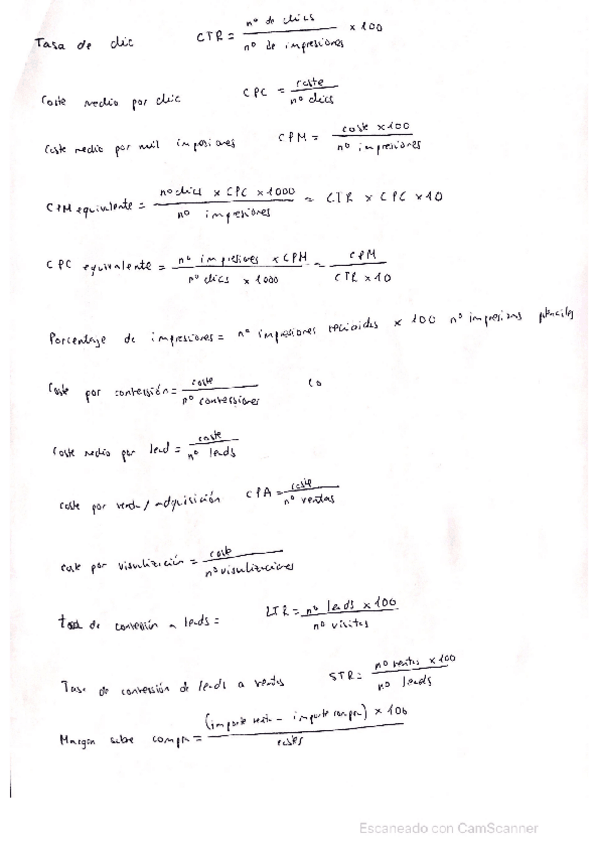 Tasa de clic CTR = nº de clics / nº de impresiones x 100
Coste medio por clic CPC = coste / nº clics
Coste medio por mil impresiones CPM = coste x100 / nº impresiones
CPM equivalente = nº clics x CPC x 1000 / nº impresiones = CTR x CPC x 10
CPC equivalente = nº impresiones x CPM / nº clics x 1000 = CPM / CTR x 10
Porcentaje de impresiones = nº impresiones recibidas x 100 nº impresions
Coste por conversión = coste / nº conversiones co
Coste medio por lead = coste / nº leads
coste por venta / adquisición CPA = coste / nº ventas
coste por visualización = coste / nº visualizaciones
tasa de conversión a leads = LTR = nº leads x 100 / nº visitas
Tasa de conversión de leads a ventas STR = nº ventas x 100 / nº leads
Margen sobre compra = (importe venta - importe compra) x 100 / costes
Escaneado con CamScanner